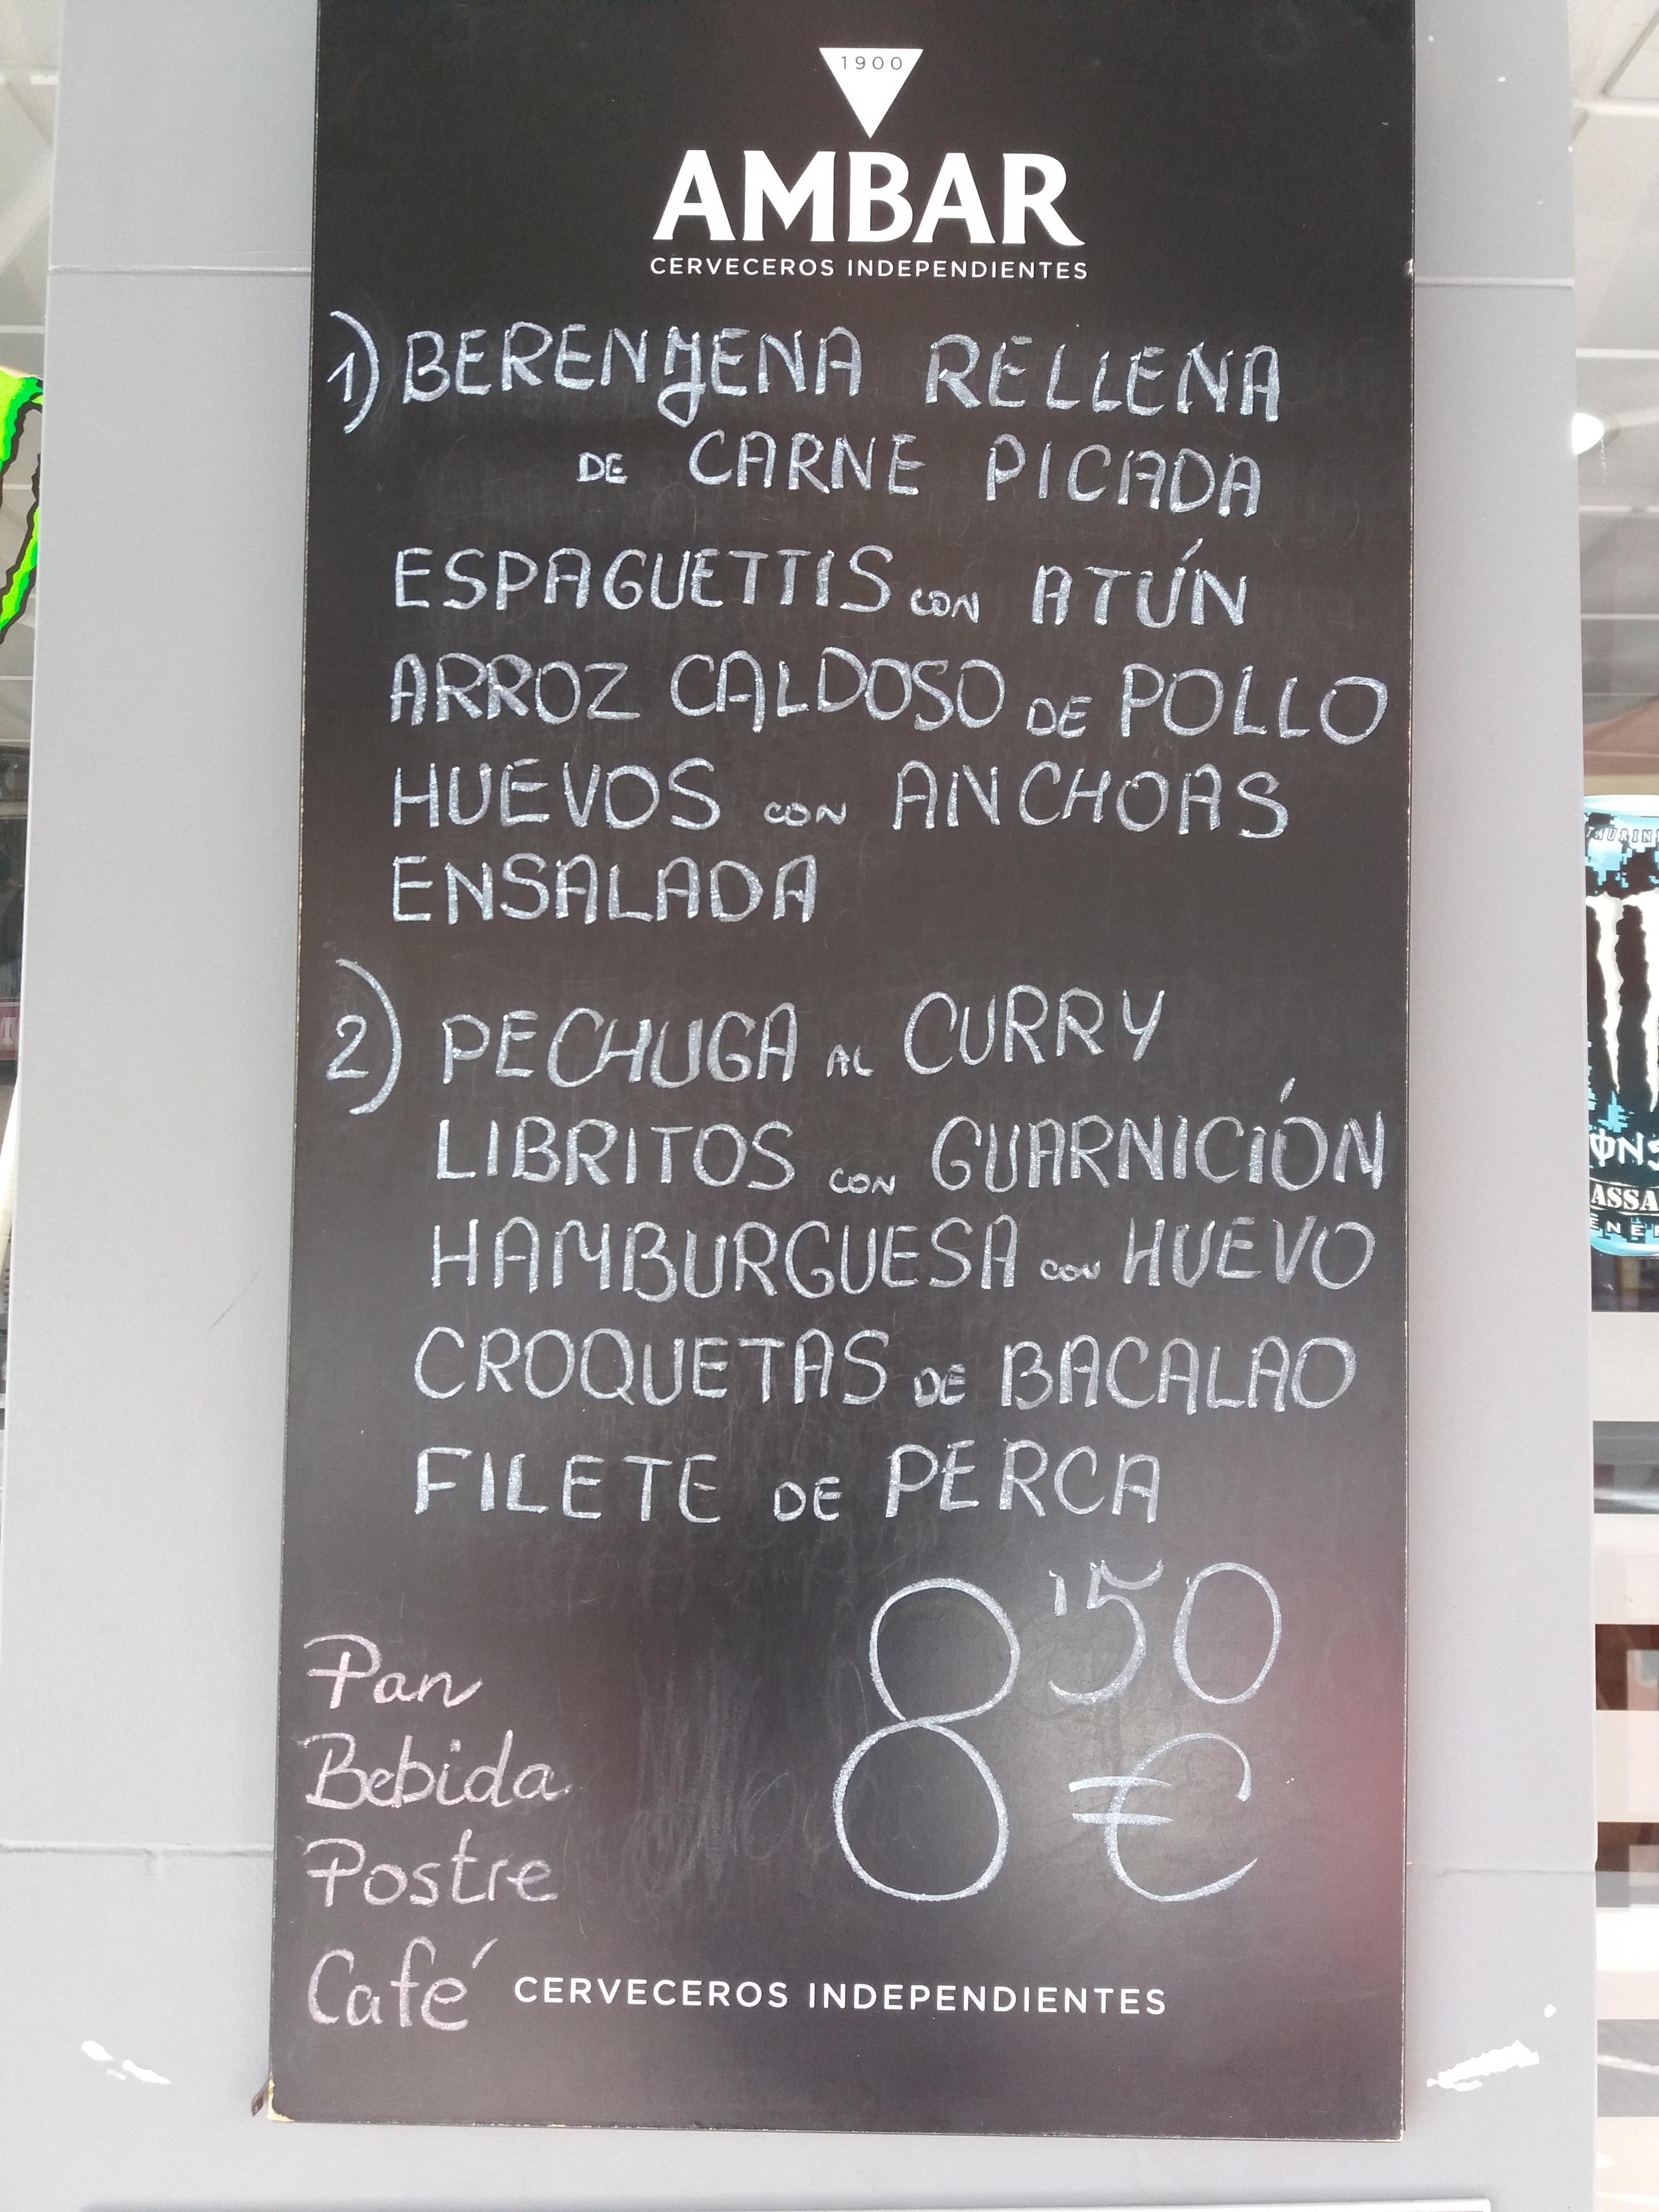 1900
AMBAR
CERVECEROS INDEPENDIENTES
1) BERENJENA RELLENA
DE CARNE PICADA
ESPAGUETTIS CON ATÚN
ARROZ CALDOSO DE POLLO
HUEVOS CON ANCHOAS
ENSALADA
2) PECHUGA AL CURRY
LIBRITOS CON GUARNICIÓN
HAMBURGUESA CON HUEVO
CROQUETAS DE BACALAO
FILETE DE PERCA
8'50
€
Pan
Bebida
Postre
Café
CERVECEROS INDEPENDIENTES